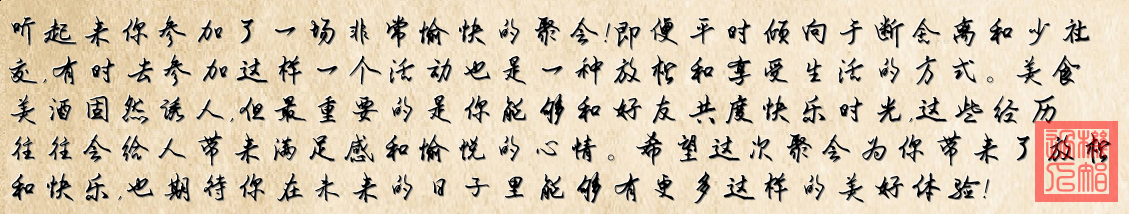 听起来你参加了一场非常愉快的聚会!即便平时倾向于断舍离和少社
交,有时去参加这样一个活动也是一种放松和享受生活的方式。美食
美酒固然诱人,但最重要的是你能够和好友共度快乐时光,这些经历
往往会给人带来满足感和愉悦的心情。希望这次聚会为你带来了放松
和快乐,也期待你在未来的日子里能够有更多这样的美好体验!